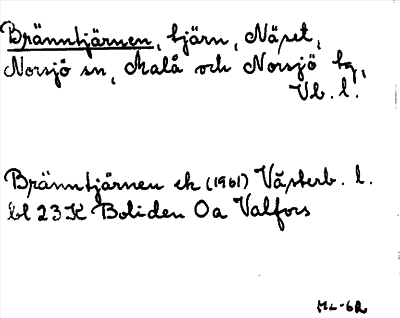 Bränntjärnen, tjärn, Näset,
Norsjö sn, Malå och Norsjö tg,
Vb. l.
Bränntjärnen ek (1961) Västerb. l.
bl 23 K Boliden 0a Valfors
ML-62